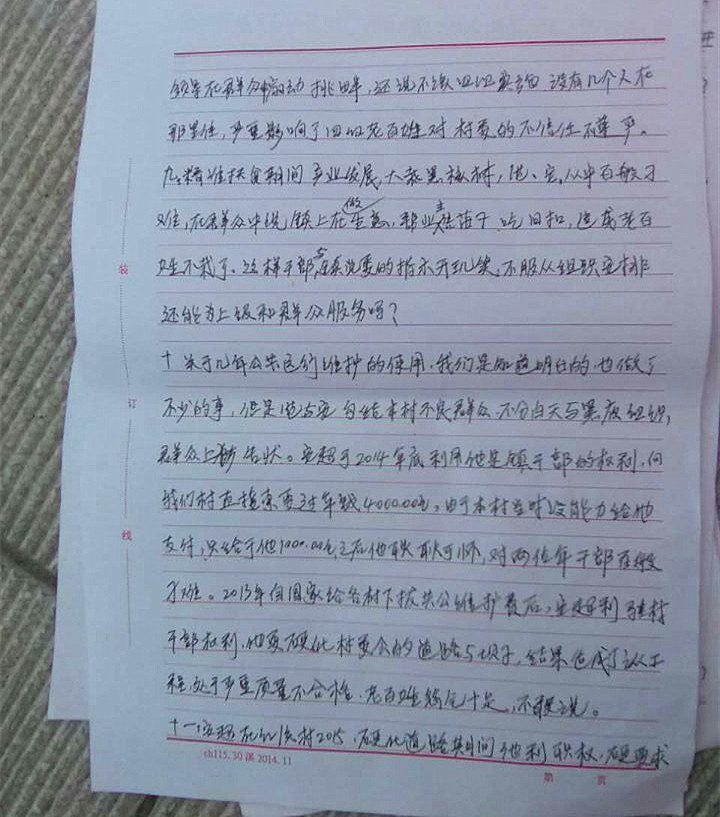 领导在群众中煽动挑畔,还说不缺四知实治 没有几个人在
那里住,严重影响了四知老百姓对村委的不信任不尊严。
九、精准扶贫期间产业发展,大栽黑椒树,他、安,从中百般刁
难,在群众中说镇上在做生意,靠业主 吃回扣,造成老百
姓不栽了。这样干部党委的指示开玩笑,不服从组职安排
还能为上级和群众服务吗?
十 关于几年公共运行维护的使用,我们是知道明白的,也做了
不少的事,但是他与安勾结本村不良群众,不分白天与黑夜组织
群众上访告状。安超于2014年底利用他是镇干部的权利,向
我们村直接索要过年钱4000.00元,由于本村当时没能力给他
支付,只给于他1000.00元,之后他怀恨,对两位年干部百般
刁难。2015年自国家给各村下拔共公维护费后,安超利驻村
干部权利,他要硬化村委会的道路与坝子,结果造成了
程处于严重质量不合格,老百姓怨气十足,不敢说。
十一、安超在红 村2015,硬化道路其间 他利职权,硬要求
装
订
线
ch115.30 溪 2014.11
第 页